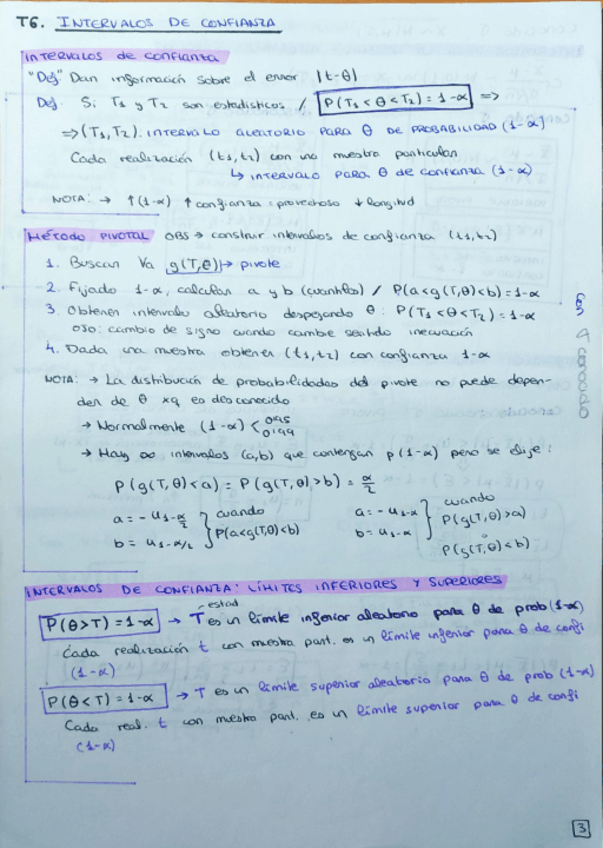 T6. INTERVALOS DE CONFIANZA
INTERVALOS de confianza
"Def" Dan información sobre el error |t-θ|
Def Si T₁ y T₂ son estadísticos / P(T₁<θ<T₂)=1-α ⇒
⇒(T₁,T₂): INTERVALO ALEATORIO PARA θ DE PROBABILIDAD (1-α)
Cada realización (t₁,t₂) con una muestra particular
↳ INTERVALO PARA θ DE CONFIANZA (1-α)
NOTA: → ↑(1-α) ↑ confianza: provechoso ↓ longitud
MÉTODO PIVOTAL OBS → construir intervalos de confianza (t₁,t₂)
1. Buscar Va g(T,θ) → pivote
2. Fijado 1-α, calcular a y b (cuantiles) / P(a<g(T,θ)<b)=1-α
3. Obtener intervalo aleatorio despejando θ: P(T₁<θ<T₂)=1-α
ojo: cambio de signo cuando cambie sentido inecuación
4. Dada una muestra obtener (t₁,t₂) con confianza 1-α
NOTA: → La distribución de probabilidades del pivote no puede depen-
der de θ xq es desconocido
→ Normalmente (1-α) < 0'95 0'99
→ Hay ∞ intervalos (a,b) que contengan p(1-α) pero se elije:
P(g(T,θ)<a) = P(g(T,θ)>b) = α/2
a = -u₁-α/2 } cuando a = -u₁-α } cuando
b = u₁-α/2 P(a<g(T,θ)<b) b = u₁-α P(g(T,θ)>a)
ó
P(g(T,θ)<b)
INTERVALOS DE CONFIANZA: LÍMITES INFERIORES Y SUPERIORES
estad
P(θ>T)=1-α → T es un límite inferior aleatorio para θ de prob (1-α)
Cada realización t con muestra part. es un límite inferior para θ de confi
(1-α)
P(θ<T)=1-α → T es un límite superior aleatorio para θ de prob (1-α)
Cada real. t con muestra part. es un límite superior para θ de confi
(1-α)
3